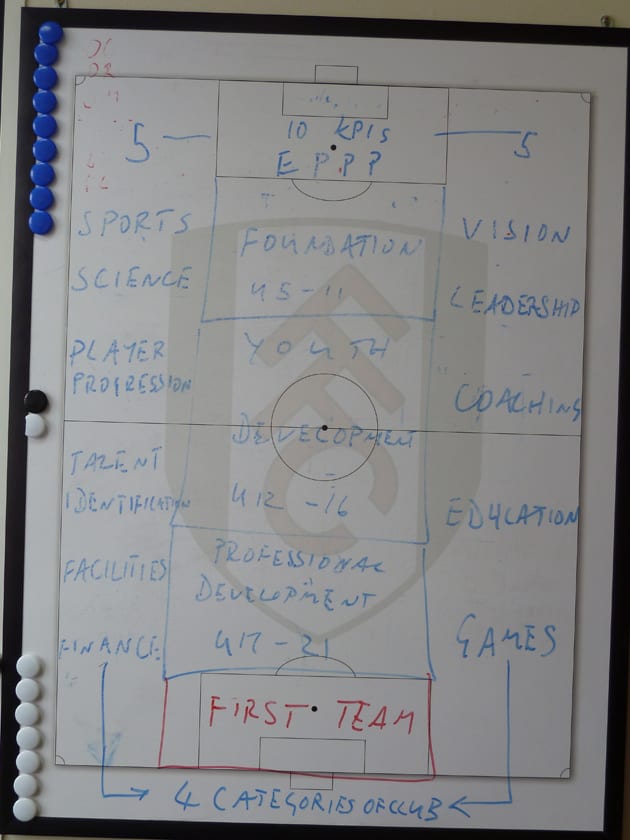 10 KPIs
5
5
E P.P.P
SPORTS
SCIENCE
PLAYER
PROGRESSION
TALENT
IDENTIFICATION
FACILITIES
FINANCE
FOUNDATION
U5-11
YOUTH
DEVELOPMENT
U12-16
PROFESSIONAL
DEVELOPMENT
U17-21
FIRST TEAM
VISION
LEADERSHIP
COACHING
EDUCATION
GAMES
4 CATEGORIES OF CLUB